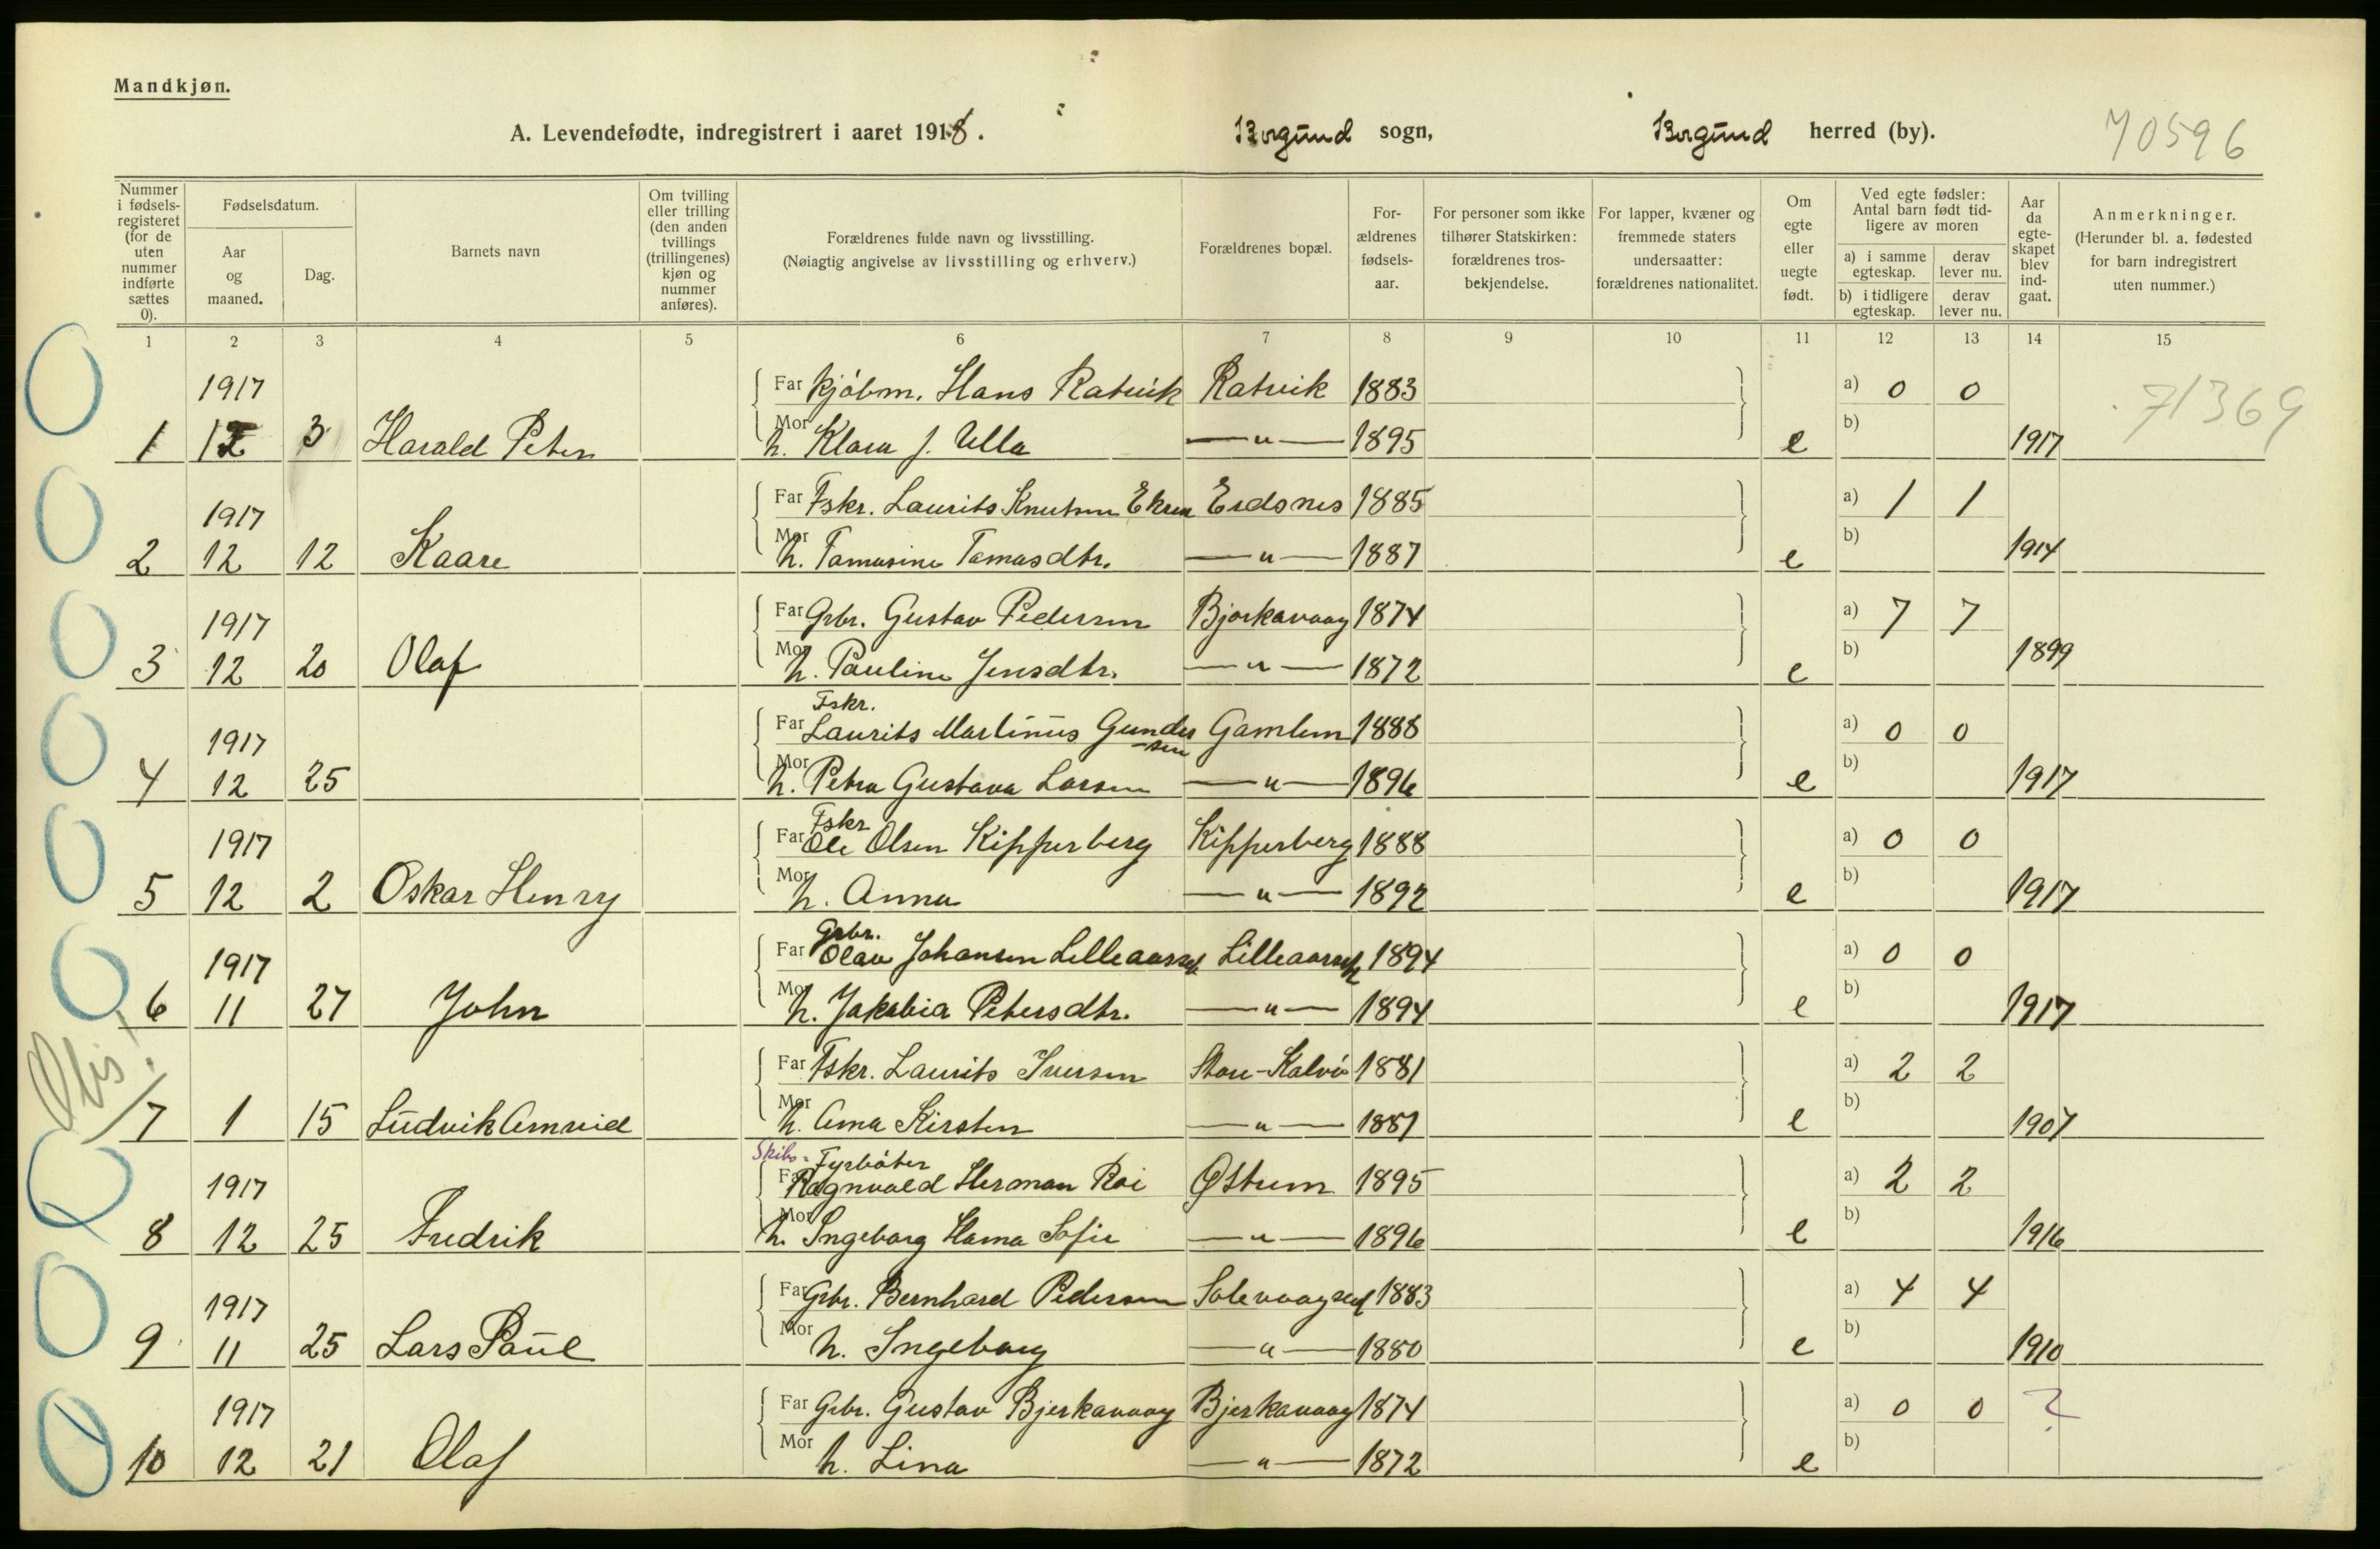 Mandkjøn.
A. Levendefødte, indregistrert i aaret 1918. Borgund sogn, Borgund herred (by). 70596
Nummer i fødsels-registeret (for de uten nummer indførte sættes 0).
Fødselsdatum.
Aar og maaned.
Dag.
Barnets navn
Om tvilling eller trilling (den anden tvillings (trillingenes) kjøn og nummer anføres).
Forældrenes fulde navn og livsstilling.
(Nøiagtig angivelse av livsstilling og erhverv.)
Forældrenes bopæl.
For-ældrenes fødsels-aar.
For personer som ikke tilhører Statskirken: forældrenes tros-bekjendelse.
For lapper, kvæner og fremmede staters undersaatter: forældrenes nationalitet.
Om egte eller uegte født.
Ved egte fødsler: Antal barn født tid-ligere av moren
a) i samme egteskap. derav lever nu.
b) i tidligere egteskap. derav lever nu.
Aar da egte-skapet blev ind-gaat.
Anmerkninger.
(Herunder bl. a. fødested for barn indregistrert uten nummer.)
1 2 3 4 5 6 7 8 9 10 11 12 13 14 15
1917 Far Kjøbm. Hans Ratvik Ratvik 1883 a) 0 0 71369
1 12 3 Harald Peter Mor h. Klara J. Ulla — " — 1895 e b) 1917
1917 Far Fskr. Laurits Knutsen Ekren Eidsnes 1885 a) 1 1
2 12 12 Kaare Mor h. Tamasine Tamasdtr. — " — 1887 e b) 1914
1917 Far Grbr. Gustav Pedersen Bjørkavaag 1874 a) 7 7
3 12 20 Olaf Mor h. Pauline Jensdtr. — " — 1872 e b) 1899
Fskr.
1917 Far Laurits Martinus Gunder-sen Gamlem 1888 a) 0 0
4 12 25 Mor h. Petra Gustava Larsen — " — 1896 e b) 1917
Fskr
1917 Far Ole Olsen Kipperberg Kipperberg 1888 a) 0 0
5 12 2 Oskar Henry Mor h. Anna — " — 1892 e b) 1917
Grbr.
1917 Far Olav Johansen Lilleaarseth Lilleaarseth 1894 a) 0 0
6 11 27 John Mor h. Jakobia Petersdtr. — " — 1894 e b) 1917
Far Fskr. Laurits Iversen Store-Kalvø 1881 a) 2 2
7 1 15 Ludvik Arnvid Mor h. Anna Kirsten — " — 1881 e b) 1907
Skibs-Fyrbøter
1917 Far Ragnvald Herman Roi Østrem 1895 a) 2 2
8 12 25 Fredrik Mor h. Ingeborg Hanna Sofie — " — 1896 e b) 1916
1917 Far Grbr. Bernhard Pedersen Solevaagseid 1883 a) 4 4
9 11 25 Lars Paul Mor h. Ingeborg — " — 1880 e b) 1910
1917 Far Grbr. Gustav Bjerkavaag Bjerkavaag 1874 a) 0 0 ?
10 12 21 Olaf Mor h. Lina — " — 1872 e b)